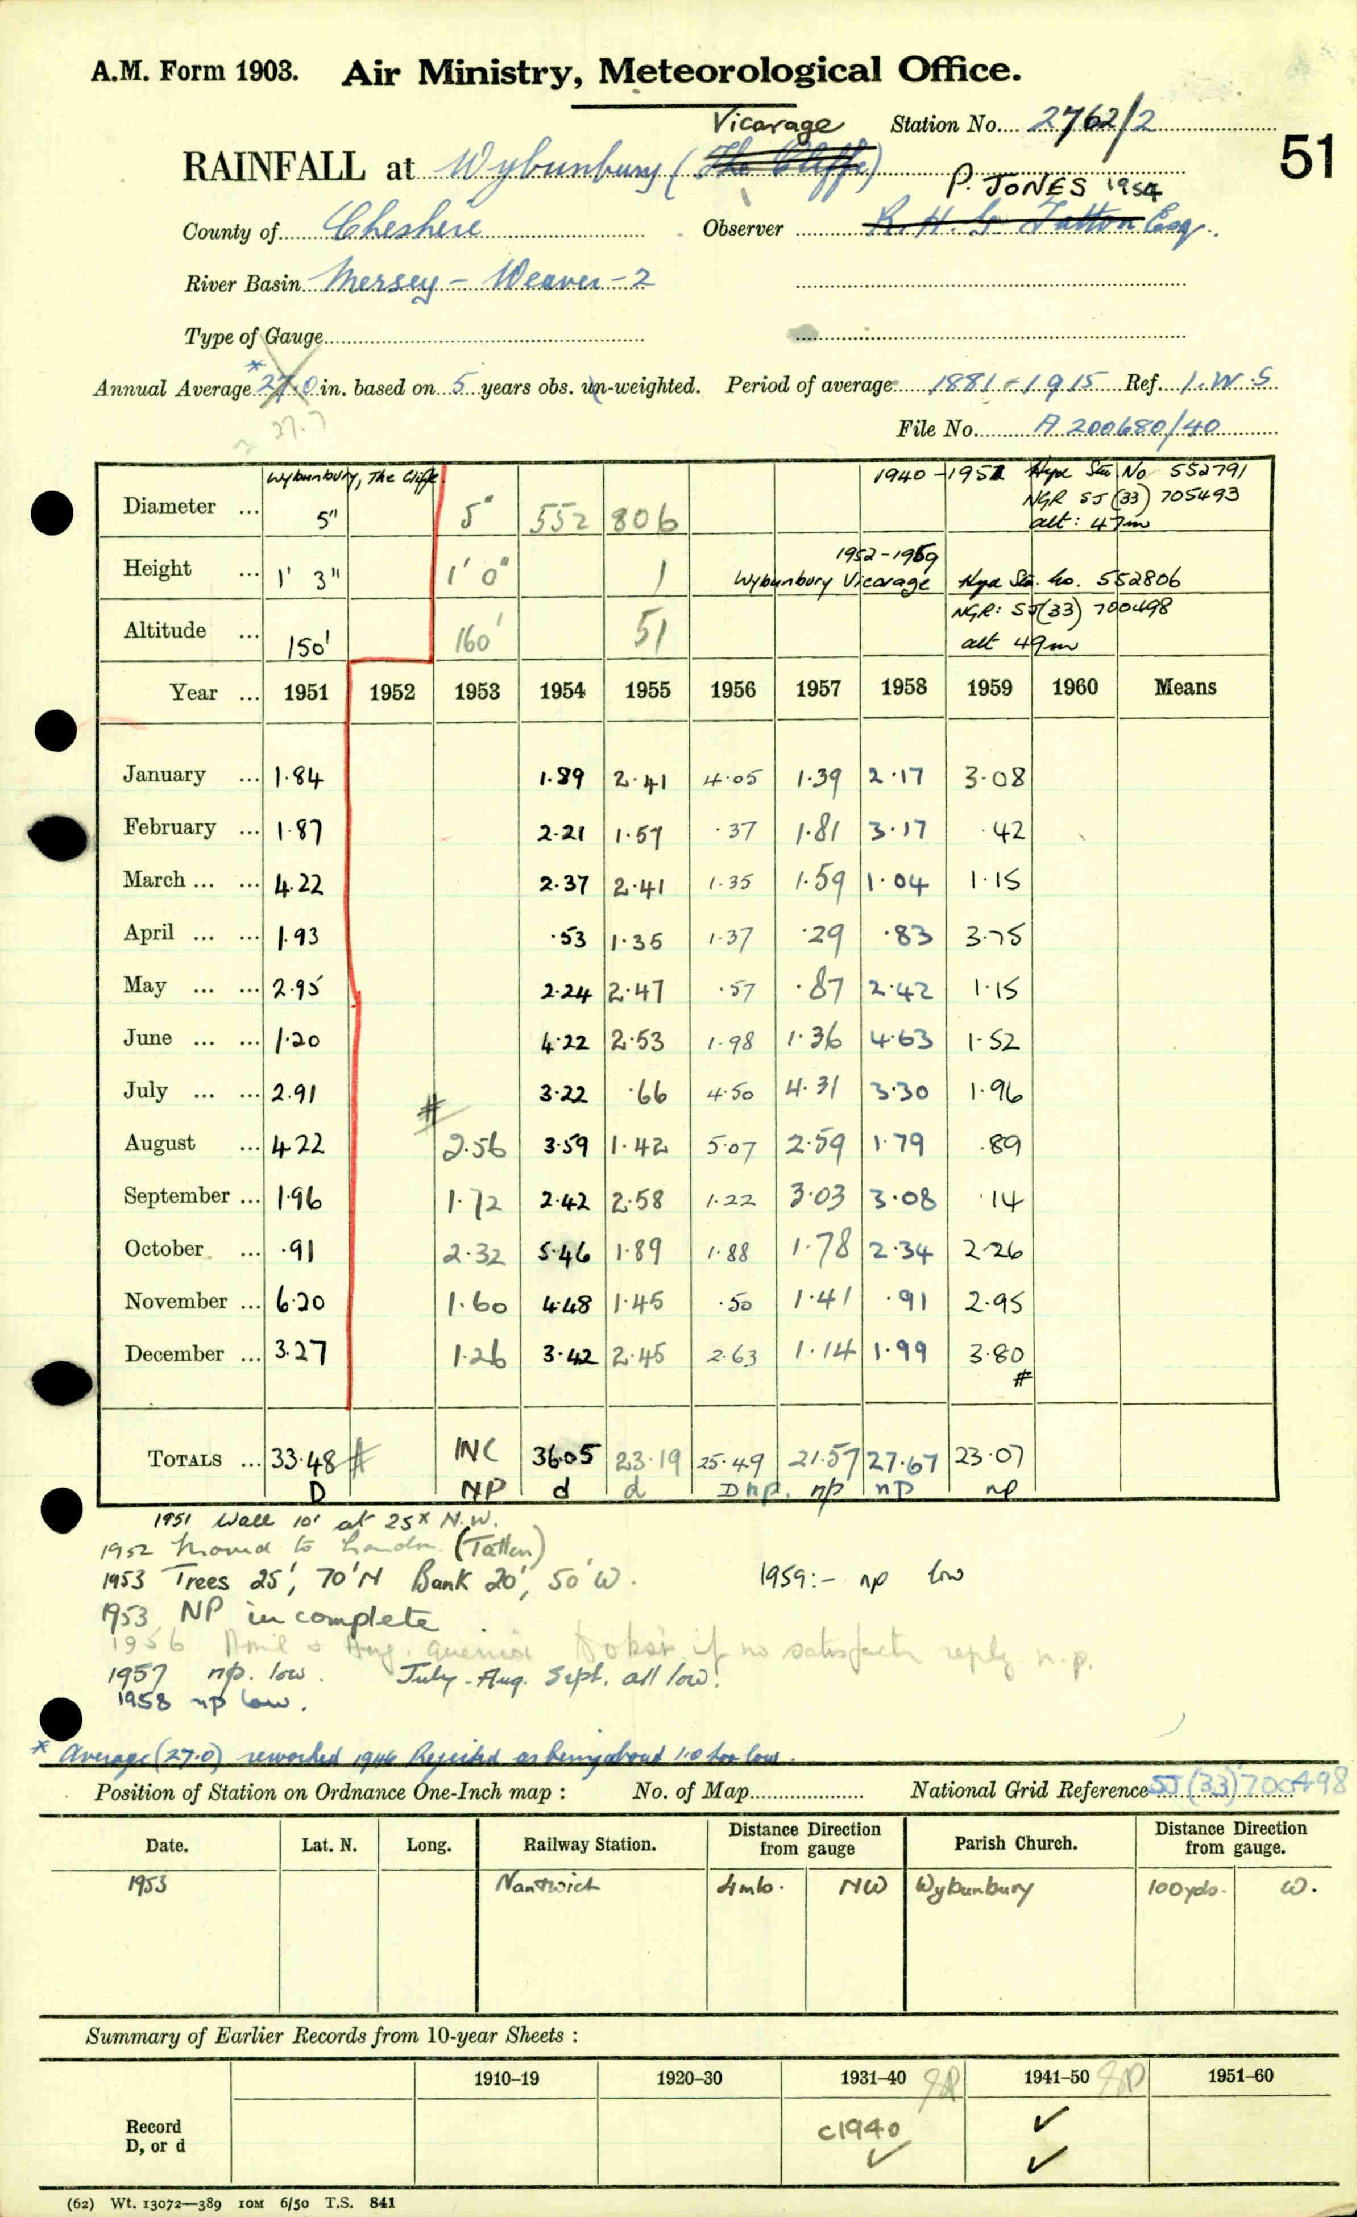 A.M. Form 1903. Air Ministry, Meteorological Office.
Vicarage Station No. 2762/2
51
RAINFALL at Wybunbury (The Cliffe)
P. JONES 1954
County of Cheshire Observer R. H. G. Tatton Esq.
River Basin Mersey - Weaver - 2
Type of Gauge
Annual Average * 27.0 in. based on 5 years obs. un-weighted. Period of average 1881-1915 Ref. I.W.S
~ 27.7
File No. A 200680/40
Wybunbury, The Cliffe 1940-1951 Hyd Stn. No 552791
Diameter ... 5" 5" 552 806 NGR SJ (33) 705493
alt: 47m
1952-1959
Height ... 1' 3" 1' 0" 1 Wybunbury Vicarage Hyd Stn. No. 552806
NGR: SJ(33) 700498
Altitude ... 150' 160' 51 alt 49m
Year ... 1951 1952 1953 1954 1955 1956 1957 1958 1959 1960 Means
January ... 1.84 1.89 2.41 4.05 1.39 2.17 3.08
February ... 1.87 2.21 1.57 .37 1.81 3.17 .42
March ... ... 4.22 2.37 2.41 1.35 1.59 1.04 1.15
April ... ... 1.93 .53 1.35 1.37 .29 .83 3.75
May ... ... 2.95 2.24 2.47 .57 .87 2.42 1.15
June ... ... 1.20 4.22 2.53 1.98 1.36 4.63 1.52
July ... ... 2.91 3.22 .66 4.50 4.31 3.30 1.96
#
August ... 4.22 2.56 3.59 1.42 5.07 2.59 1.79 .89
September ... 1.96 1.72 2.42 2.58 1.22 3.03 3.08 .14
October ... .91 2.32 5.46 1.89 1.88 1.78 2.34 2.26
November ... 6.20 1.60 4.48 1.45 .50 1.41 .91 2.95
December ... 3.27 1.26 3.42 2.45 2.63 1.14 1.99 3.80
#
TOTALS ... 33.48 # INC 36.05 23.19 25.49 21.57 27.67 23.07
D NP d d D np. np np np
1951 Wall 10' at 25x N.W.
1952 Moved to London (Tatton)
1953 Trees 25', 70'N Bank 20', 50'W. 1959:- np low
1953 NP incomplete
1956 April & Aug. queried if no satisfactory reply n.p.
1957 np. low. July - Aug. Sept. all low!
1958 np low.
* Average (27.0) reworked 1946 Rejected as being about 1.0 too low.
Position of Station on Ordnance One-Inch map : No. of Map National Grid Reference SJ (33) 700498
Date. Lat. N. Long. Railway Station. Distance from gauge Direction Parish Church. Distance from gauge. Direction
1953 Nantwich 4mls. NW Wybunbury 100yds. W.
Summary of Earlier Records from 10-year Sheets :
1910–19 1920–30 1931–40 1941–50 1951–60
Record D, or d c1940 ✓ ✓
✓
(62) Wt. 13072—389 10M 6/50 T.S. 841